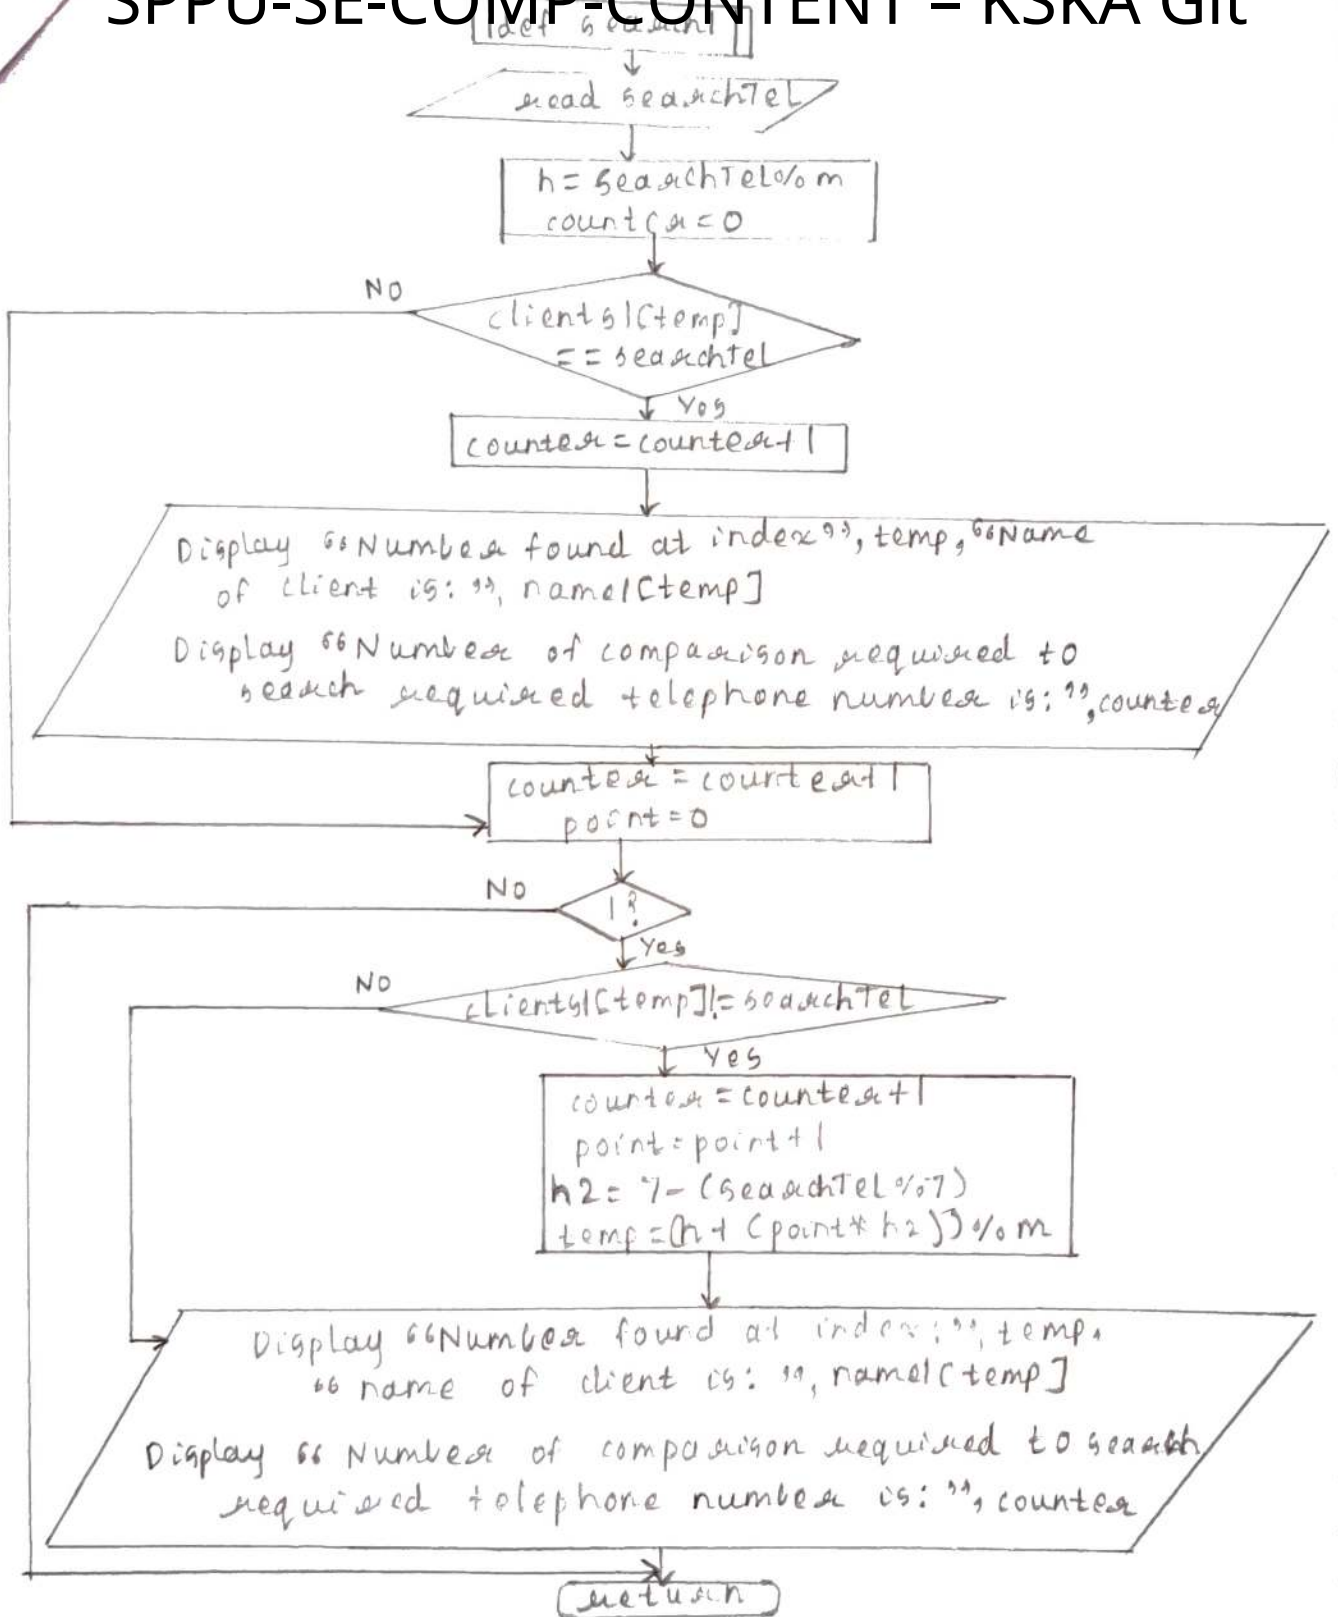 SPPU-SE-COMP-CONTENT – KSKA Git
def search1
read searchTel
h = searchTel%m
counter = 0
NO
clients1[temp]
== searchtel
Yes
counter = counter+1
Display "Number found at index", temp, "Name
of client is: ", name1[temp]
Display "Number of comparison required to
search required telephone number is: ", counter
counter = counter+1
point = 0
NO
1?
Yes
NO
clients1[temp]!= searchTel
Yes
counter = counter+1
point = point+1
h2 = 7-(searchTel%7)
temp = (h+(point*h2))%m
Display "Number found at index: ", temp,
"name of client is: ", name1[temp]
Display "Number of comparison required to search
required telephone number is: ", counter
return